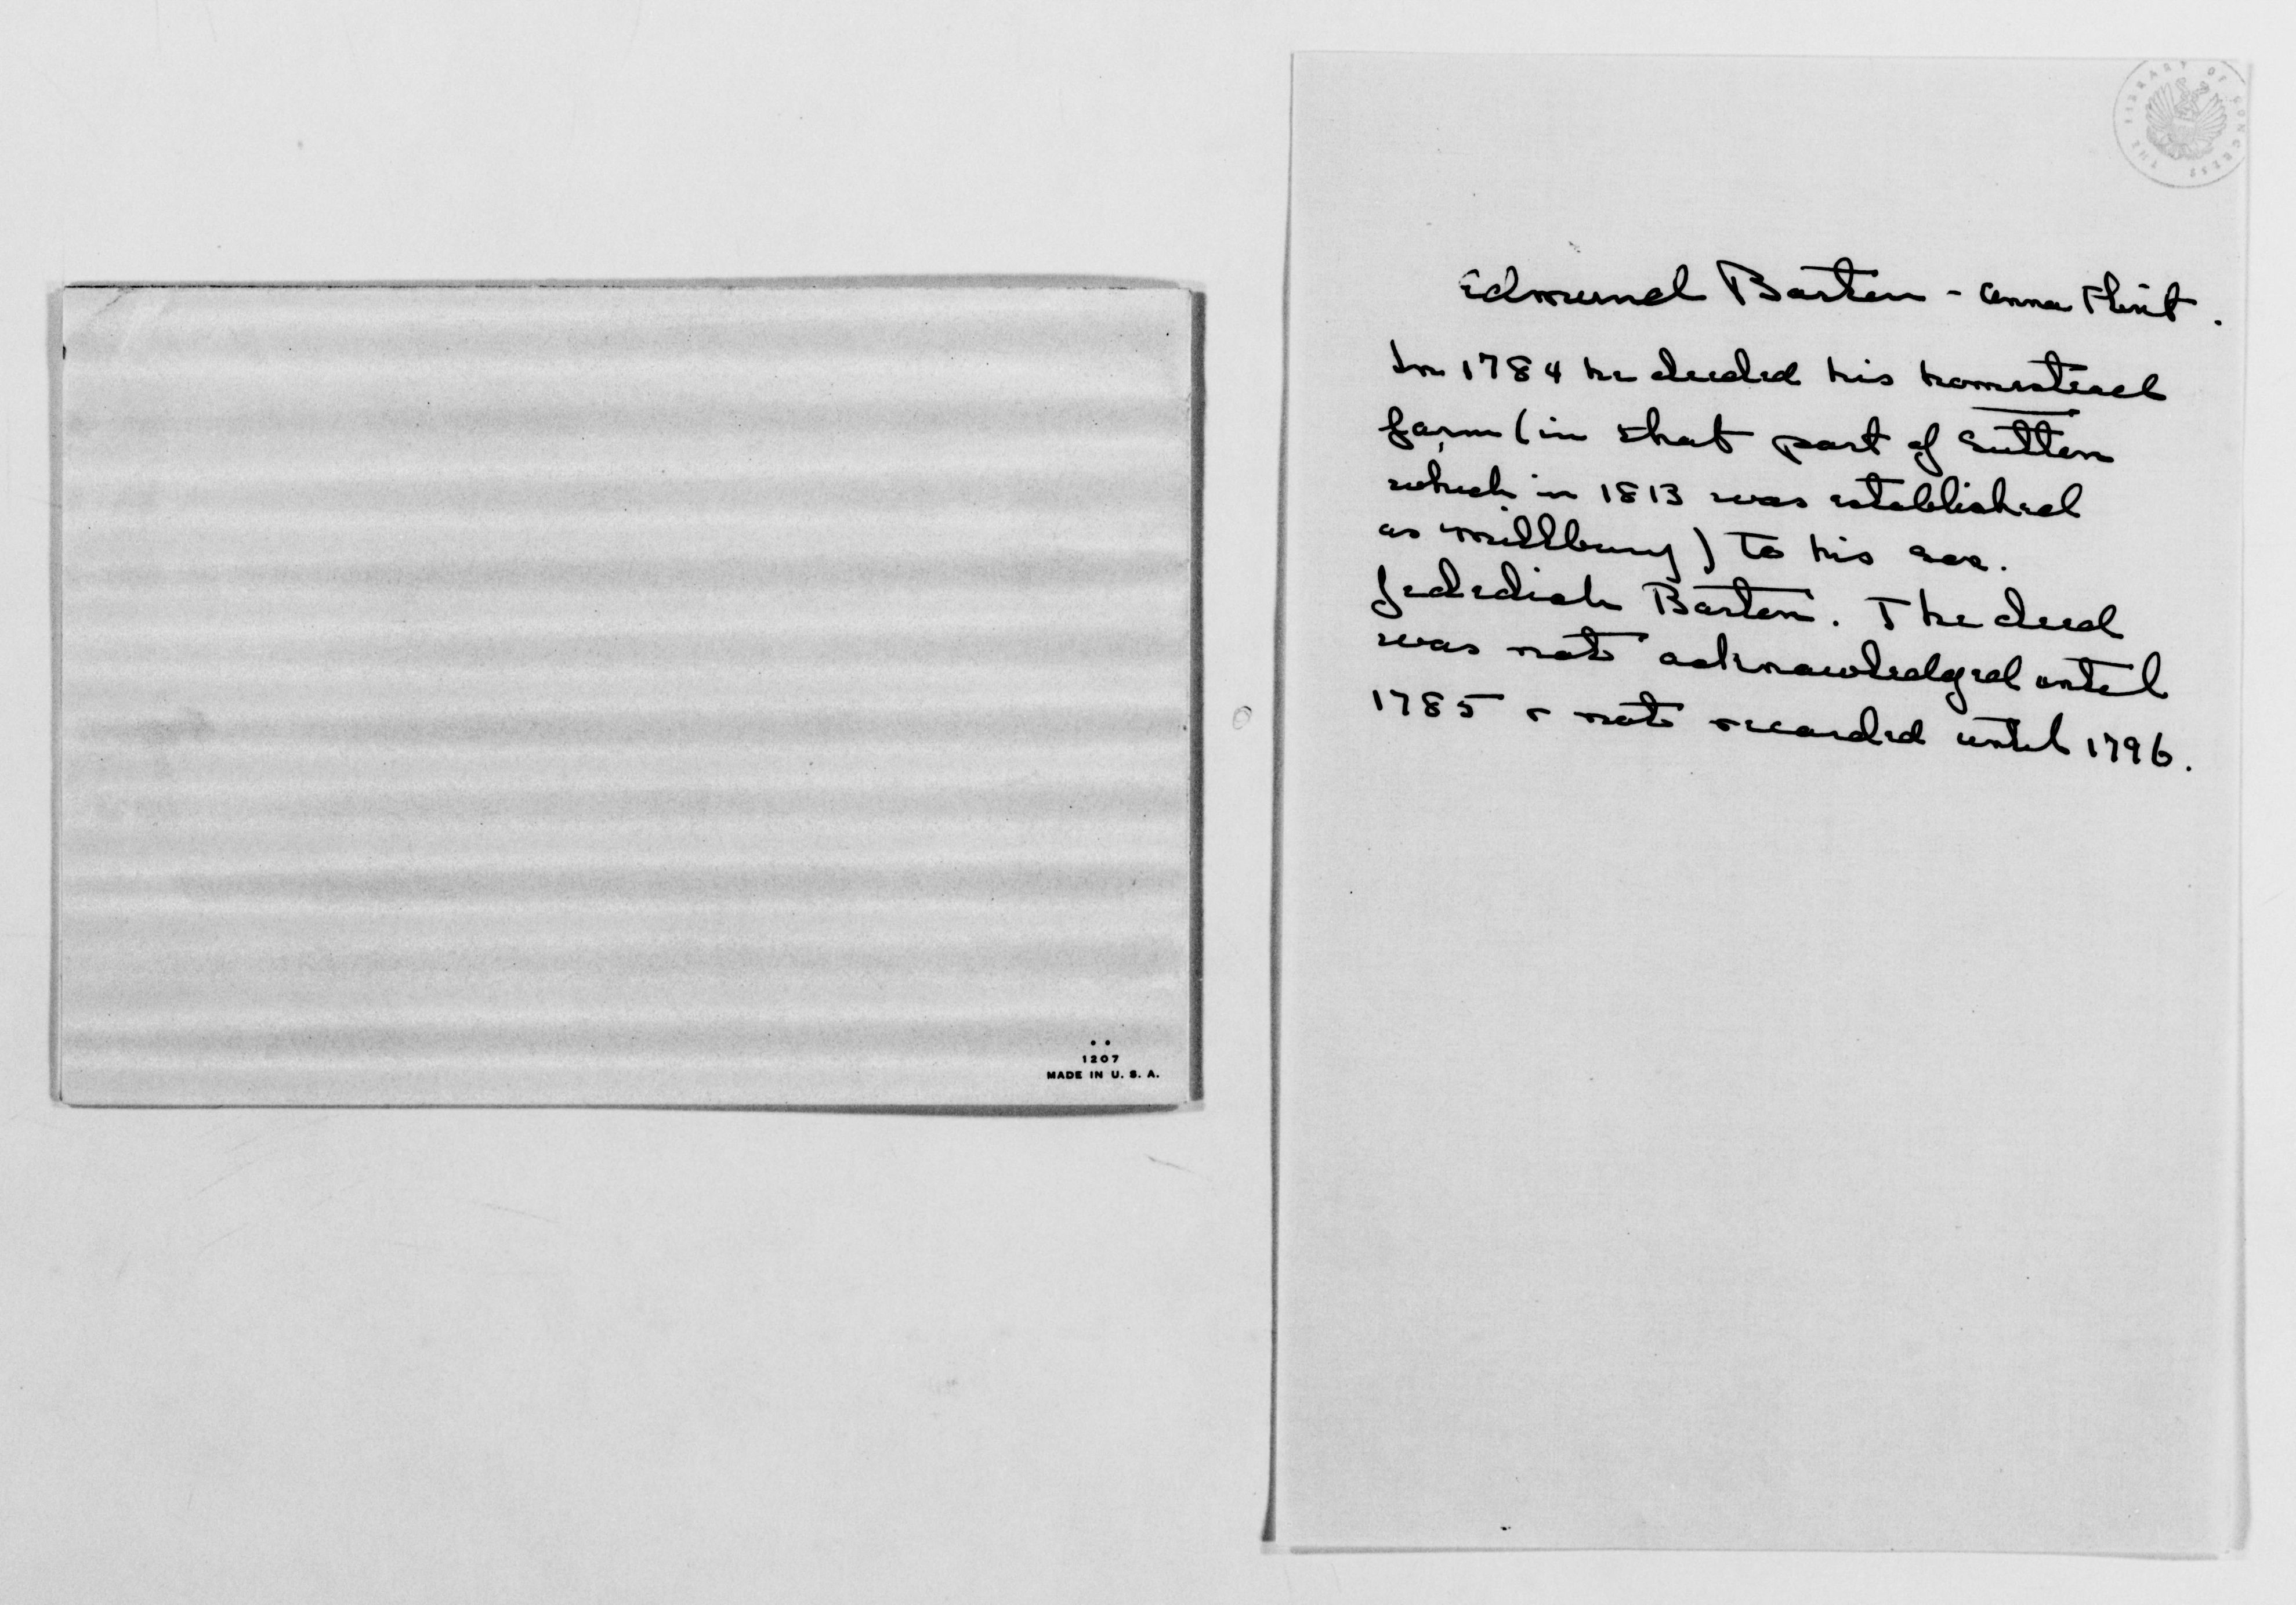 1207
MADE IN U. S. A.
THE LIBRARY OF CONGRESS
Edmund Barton - Anna Flint.
In 1784 he deeded his homestead
farm (in that part of Sutton
which in 1813 was established
as Millbury) to his son.
Jedediah Barton. The deed
was not acknowledged until
1785 & not recorded until 1796.